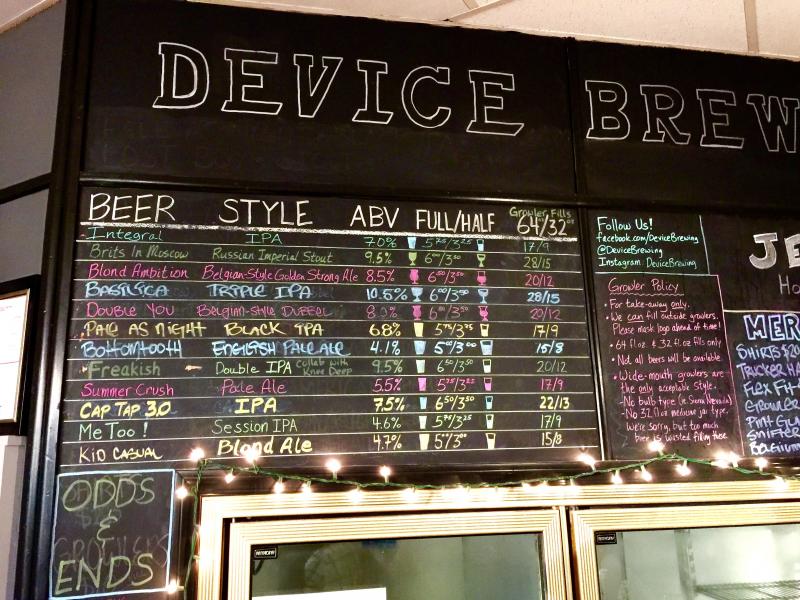 DEVICE BREW
BEER STYLE ABV FULL/HALF Growler Fills 64/32oz
Integral IPA 7.0% 5.75/3.25 17/9
Brits In Moscow Russian Imperial Stout 9.5% 6.00/3.00 28/15
Blond Ambition Belgian-Style Golden Strong Ale 8.5% 6.50/3.50 20/12
BASILISCA TRIPLE IPA 10.5% 6.00/3.00 28/15
DOUBLE YOU BELGIAN-STYLE DUBBEL 6.50/3.50 20/12
PALE AS NIGHT BLACK IPA 6.8% 5.75/3.25 17/9
Bottomtooth ENGLISH PALE ALE 4.1% 5.00/3.00 15/8
Freakish Double IPA collab with Knee Deep 9.5% 6.50/3.50 20/12
Summer Crush Pale Ale 5.5% 5.75/3.25 17/9
CAP TAP 3.0 IPA 7.5% 6.50/3.50 22/13
Me Too! Session IPA 4.6% 5.75/3.25 17/9
KID CASUAL Blond Ale 4.7% 5.00/3.00 15/8
ODDS
&
ENDS
Follow Us!
facebook.com/DeviceBrewing
@DeviceBrewing
Instagram DeviceBrewing
Growler Policy
• For take-away only.
• We can fill outside growlers.
Please mask logo ahead of time!
• 64 fl oz. & 32 fl oz fills only
• Not all beers will be available
• Wide-mouth growlers are
the only acceptable style.
- No bulb type (ie. Sierra Nevada)
- No 32 fl oz medicine jar type.
We're sorry, but too much
beer is wasted filling these.
JE
Ho
MER
SHIRTS $20
TRUCKER HA
FLEX FIT
GROWLER
PINT GL
SNIFTER
BELGIUM